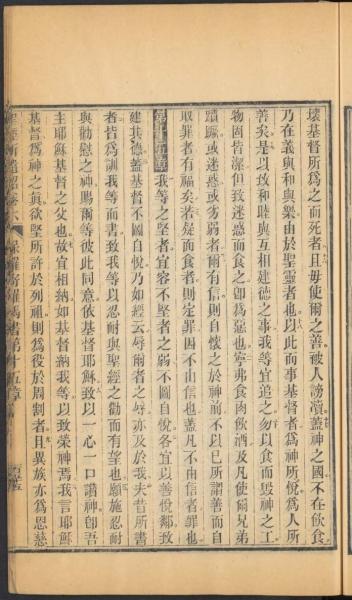 壞基督所爲之而死者且毋使爾之善被人謗瀆蓋神之國不在飲食
乃在義與和與樂由於聖靈者也以此而事基督者爲神所悅爲人所
善矣是以致和睦與互相建德之事我等宜追之勿以食而毀神之工
物固皆潔但致迷惑而食之卽爲惡也寧弗食肉飲酒及凡使爾兄弟
蹟蹶或迷惑或劣弱者爾有信則自懷之於神前不以已所謂善而自
取罪者有福矣若疑而食者則定罪因不由信也蓋凡不由信者罪也
第十五章我等之堅者宜容不堅者之弱不圖自悅各宜以善悅鄰致
建其德蓋基督不圖自悅乃如經云辱爾者之辱亦及於我夫昔所書
者皆爲訓我等而書致我等以忍耐與聖經之勸而有望也願施忍耐
與勸慰之神賜爾等彼此同意依基督耶穌致以一心一口讚神卽吾
主耶穌基督之父也故宜相納如基督納我等以致榮神焉我言耶穌
基督爲神之眞欲堅所許於列祖則爲役於周割者且異族亦爲恩慈
保羅寄羅馬書第十五章